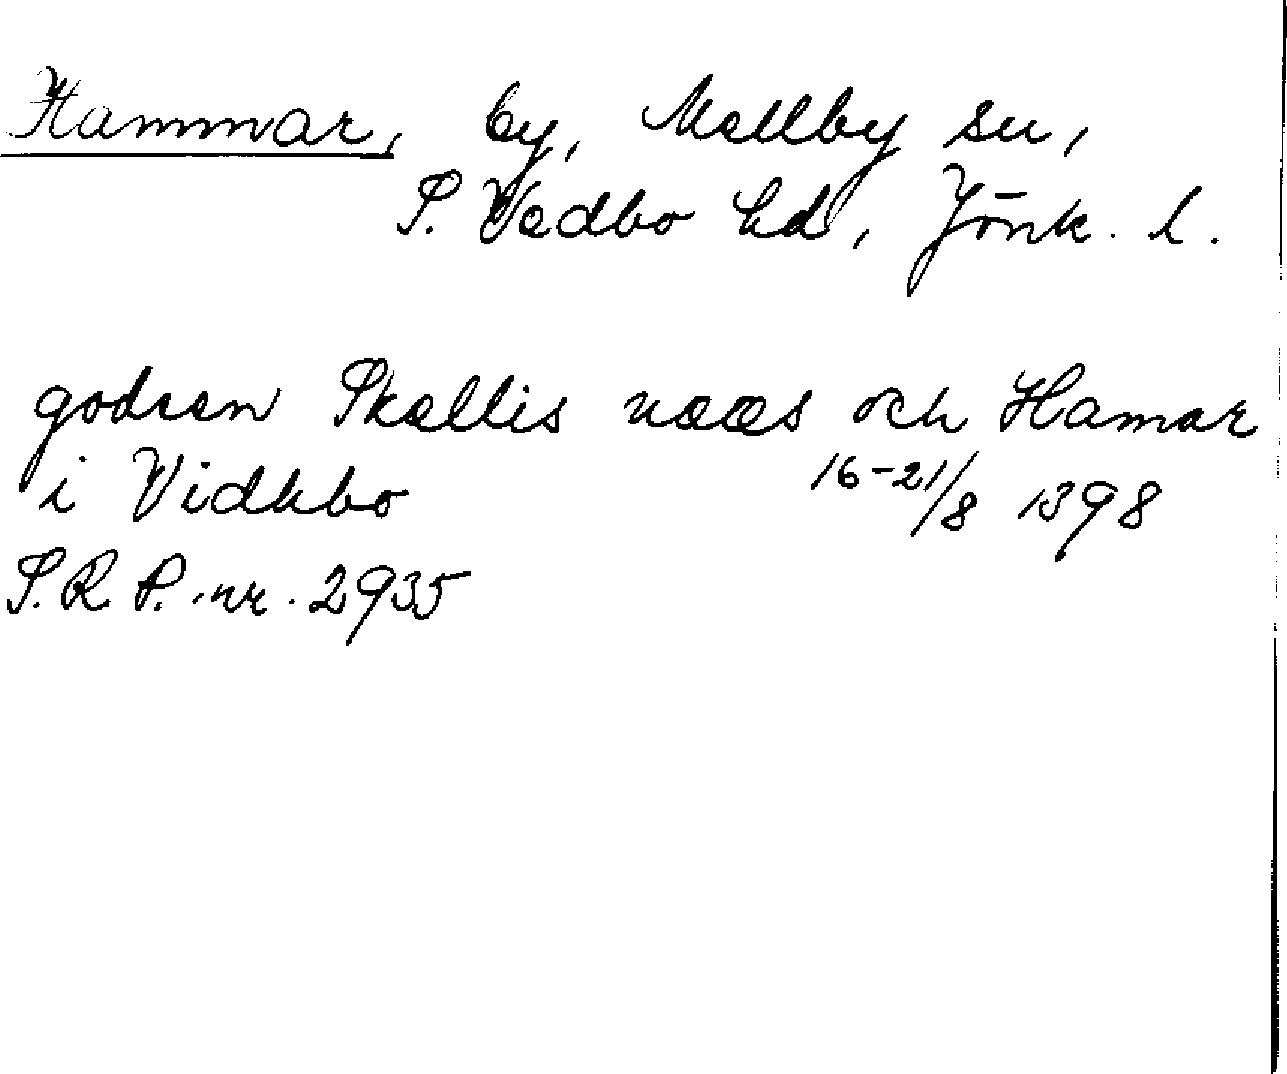 Hammar, by, Mellby sn,
S. Vedbo hd, Jönk. l.
godsen Skællis nææs och Hamar
i Vidhbo 16-21/8 1398
S.R.P. nr. 2935